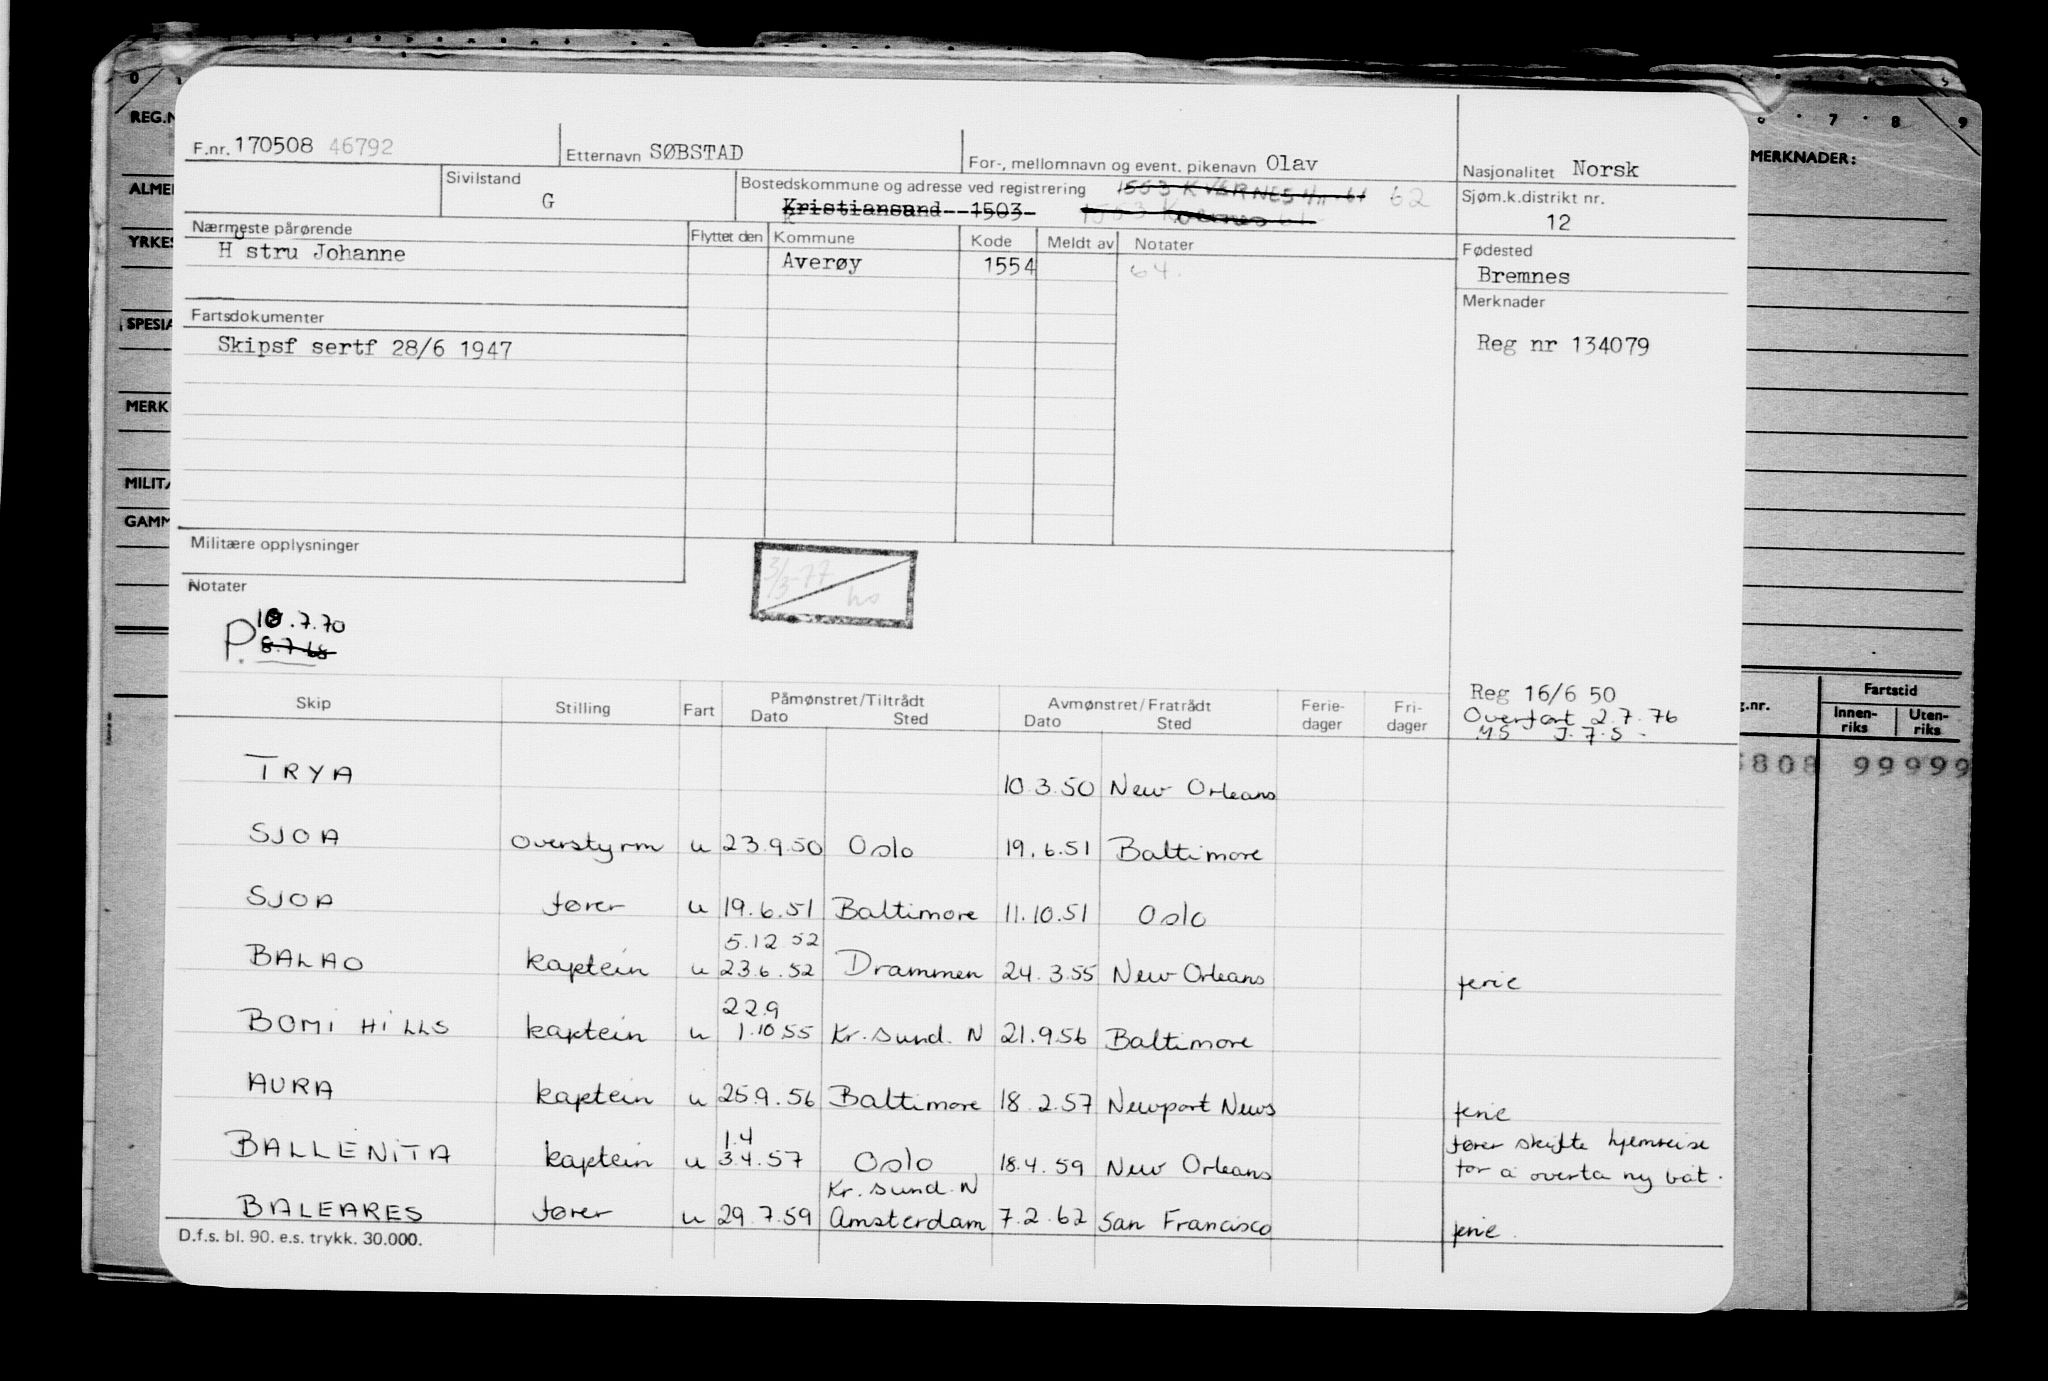 F.nr. 170508 46792 Etternavn SØBSTAD For-, mellomnavn og event. pikenavn Olav Nasjonalitet Norsk
Sivilstand G Bostedskommune og adresse ved registrering 1553 KVERNES 62 Sjøm.k.distrikt nr. 12
Kristiansund 1503 1553 Kvernes 61
Nærmeste pårørende Flyttet den Kommune Kode Meldt av Notater Fødested
Hustru Johanne Averøy 1554 64. Bremnes
Merknader
Fartsdokumenter
Skipsf sertf 28/6 1947 Reg nr 134079
Militære opplysninger
3/3-77
Notater
P. 10.7.70
8.7.68
Reg 16/6 50
Overført 2.7.76
MS J.7.S.
Skip Stilling Fart Påmønstret/Tiltrådt Avmønstret/Fratrådt Ferie-dager Fri-dager
Dato Sted Dato Sted
TRYA 10.3.50 New Orleans
SJOA overstyrm u 23.9.50 Oslo 19.6.51 Baltimore
SJOA fører u 19.6.51 Baltimore 11.10.51 Oslo
5.12.52
BALAO kaptein u 23.6.52 Drammen 24.3.55 New Orleans ferie
22.9
BOMI HILLS kaptein u 1.10.55 Kr.sund.N 21.9.56 Baltimore
AURA kaptein u 25.9.56 Baltimore 18.2.57 Newport News ferie
1.4 fører skifte hjemreise
BALLENITA kaptein u 3.4.57 Oslo 18.4.59 New Orleans for å overta ny båt.
Kr.sund.N
BALEARES fører u 29.7.59 Amsterdam 7.2.62 San Francisco ferie.
D.f.s. bl. 90. e.s. trykk. 30.000.
0
REG.N
ALME
YRKES
SPESIA
MERK
MILITÆ
GAMM
7 8 9
MERKNADER:
g.nr. Fartstid
Innen-riks Uten-riks
808 99999